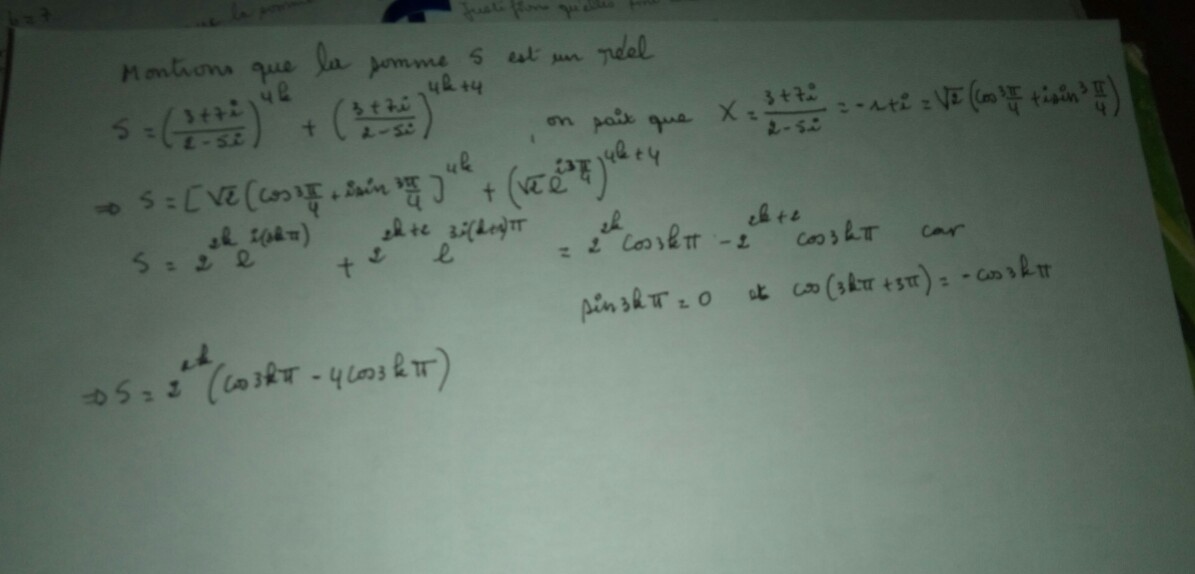 Montrons que la somme S est un réel
S = (3+7i / 2-5i)^4k + (3+7i / 2-5i)^4k+4 , on sait que X = 3+7i / 2-5i = -1+i = √2 (cos 3π/4 + i sin 3π/4)
⇒ S = [√2 (cos 3π/4 + i sin 3π/4]^4k + (√2 e^i3π/4)^4k+4
S = 2^2k e^i(3kπ) + 2^2k+2 e^3i(k+1)π = 2^2k cos3kπ - 2^2k+2 cos3kπ car
sin3kπ = 0 et cos(3kπ+3π) = -cos3kπ
⇒ S = 2^2k (cos3kπ - 4cos3kπ)